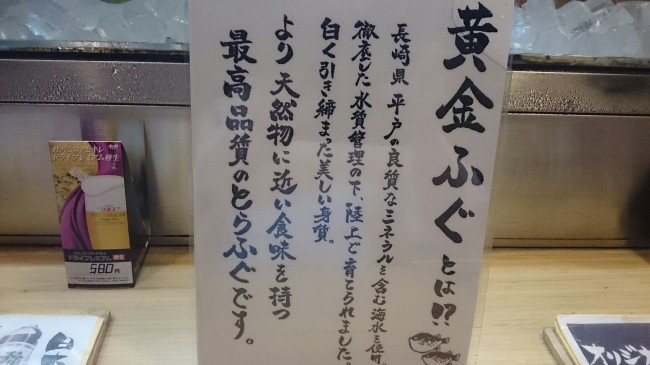 黄金ふぐとは!?
長崎県 平戸の良質なミネラルを含む海水を使用。
徹底した水質管理の下、陸上で育てられました。
白く引き締まった美しい身質。
より天然物に近い食味を持つ
最高品質のとらふぐです。
ドライプレミアム
580円
日本
オリジナ